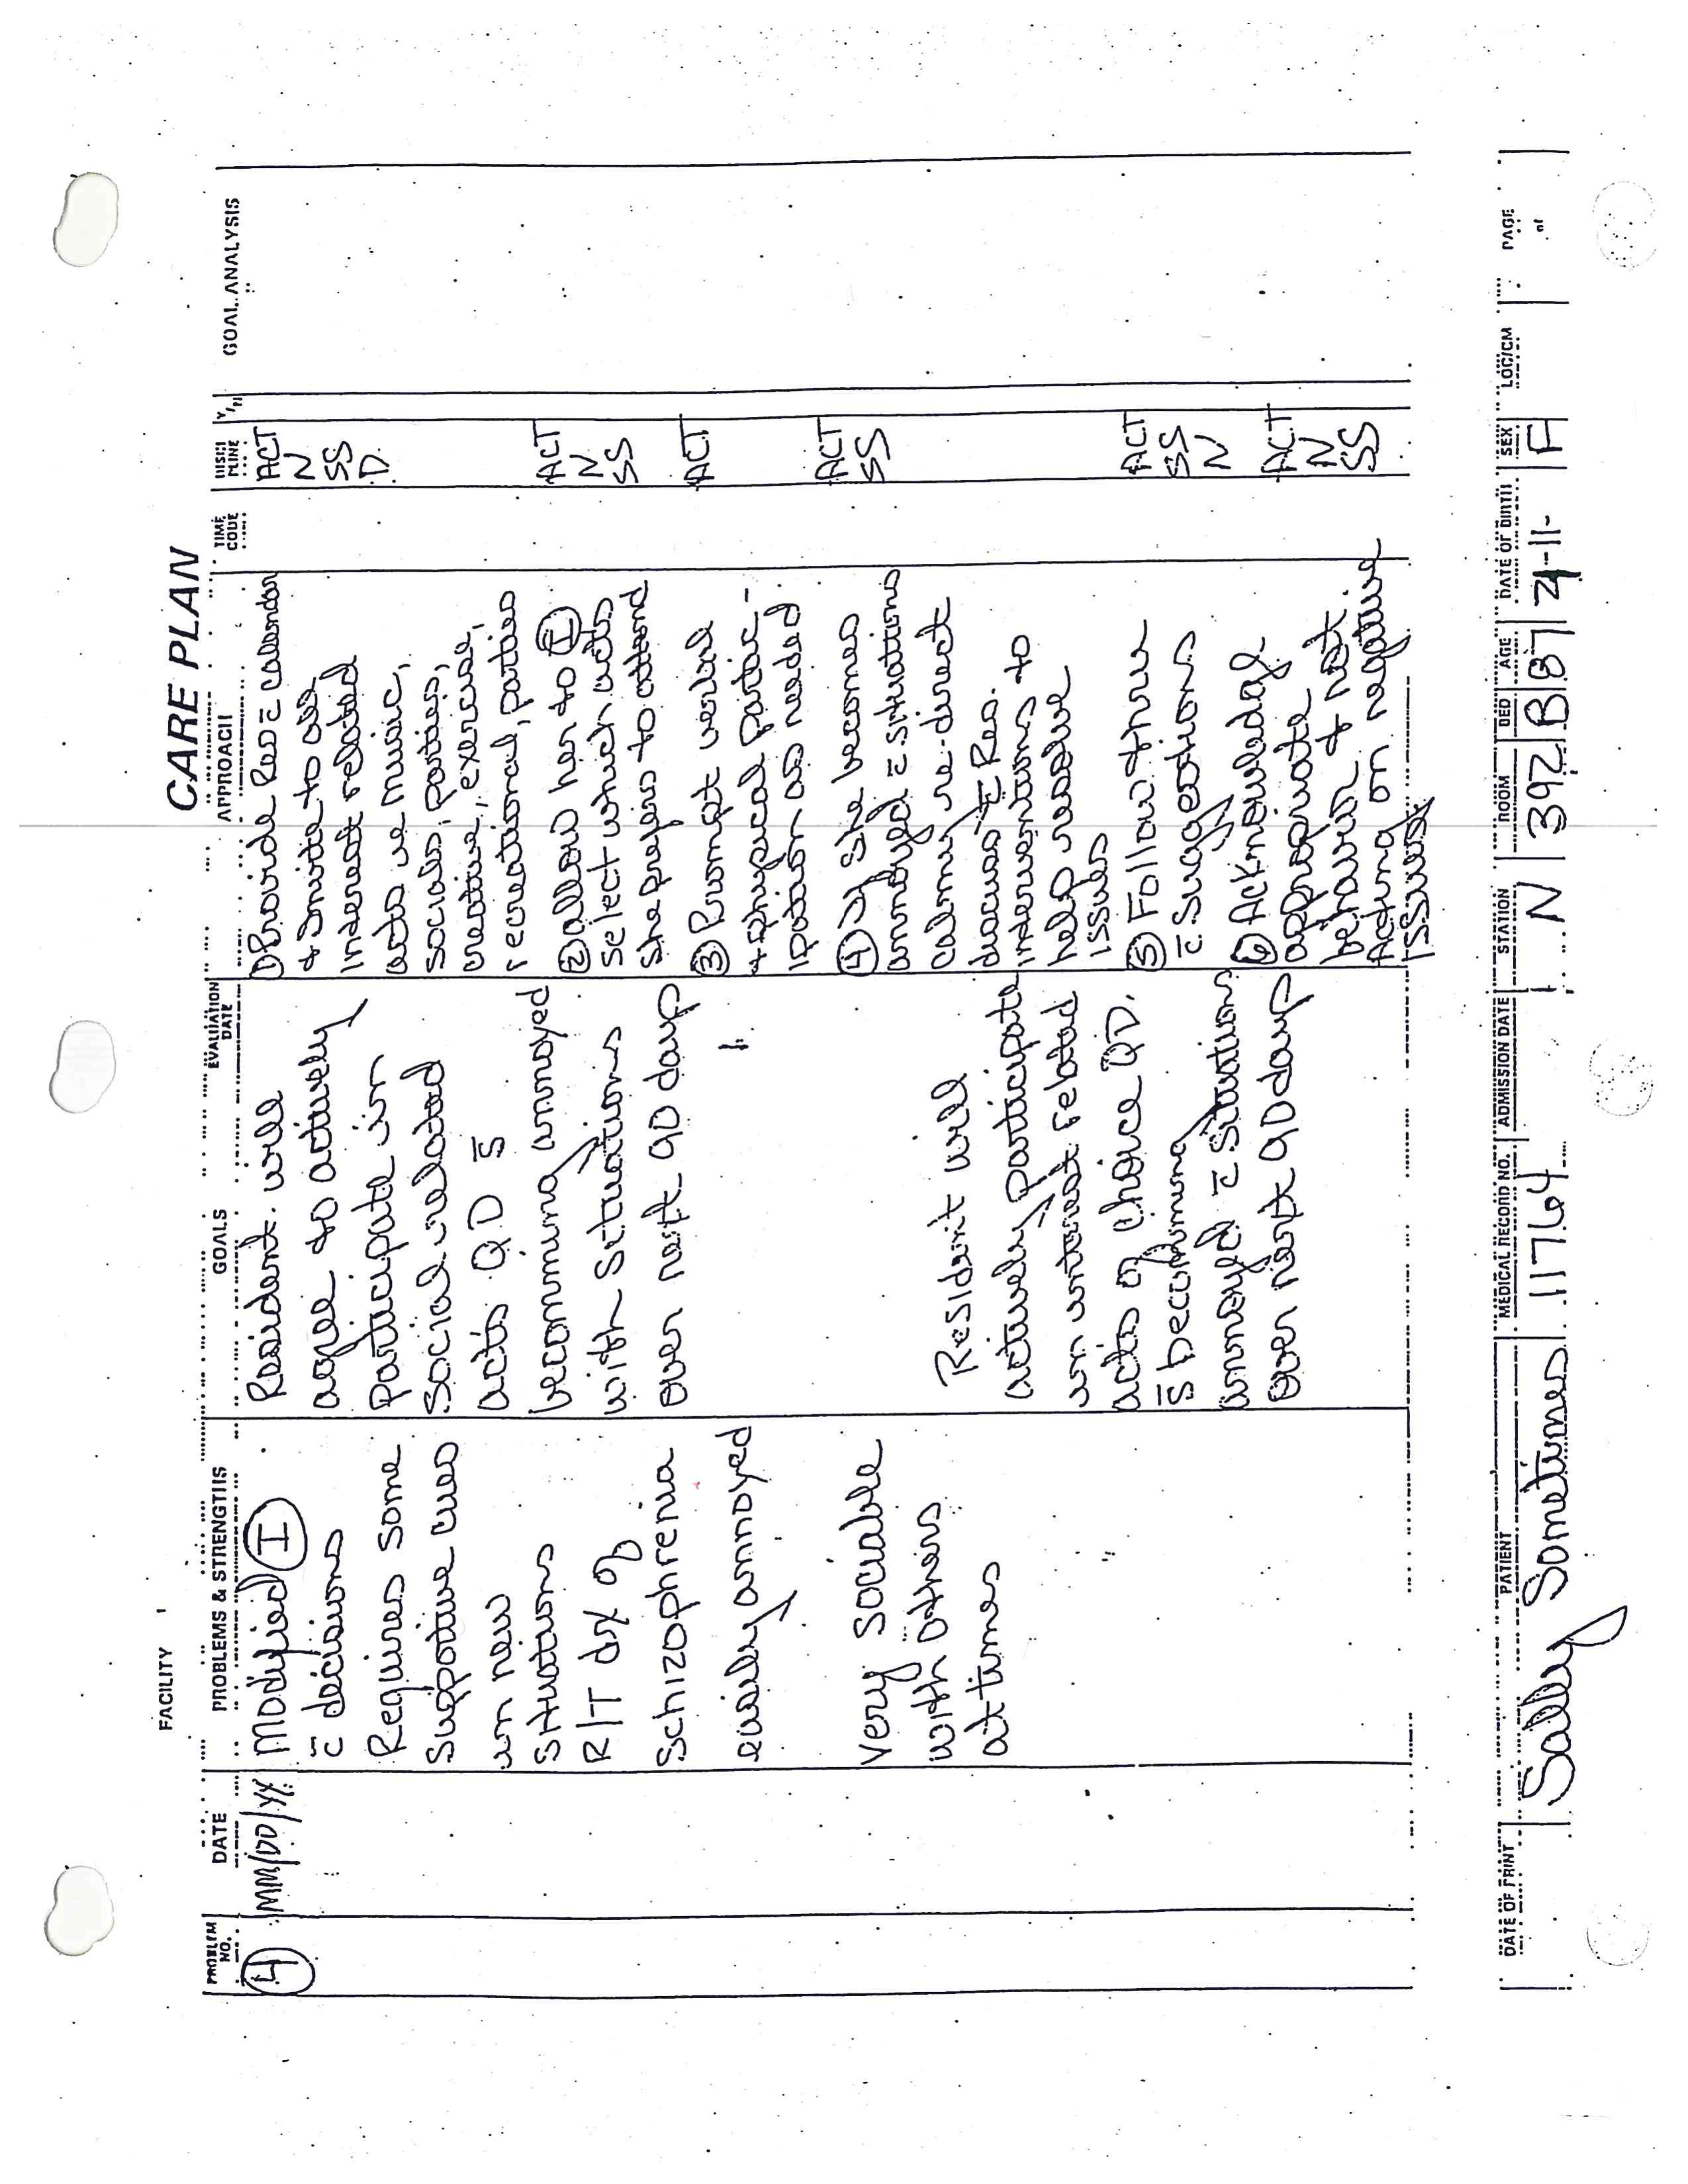 CARE PLAN
FACILITY
PROBLEM NO.
DATE
PROBLEMS & STRENGTHS
GOALS
EVALUATION DATE
APPROACH
TIME CODE
DISCI PLINE
Y/N
GOAL ANALYSIS
4
MM/DD/YY
Modified I
c̄ decisions
Requires some
Supportive cues
in new
situations
R/T dx of
Schizophrenia
easily annoyed
very sociable
with others
at times
Resident will
agree to actively
Participate in
social related
acts QD s̄
becomming annoyed
with situations
over next 90 days
Resident will
actively participate
in interest related
acts of choice QD.
s̄ becomming
annoyed c̄ situations
over next 90 days
① Provide Res c̄ calendar
+ invite to all
interest related
acts ie music,
socials, parties,
creative, exercise,
recreational, parties
② allow her to I
select which acts
she prefers to attend
③ Prompt verbal
+ physical partic-
ipation as needed
④ If she becomes
annoyed c̄ situations
calmly re-direct
discuss c̄ Res.
interventions to
help resolve
issues
⑤ Follow thru
c̄ suggestions
⑥ Acknowledge
appropriate
behavior & not
Acting on negative
issues
ACT
N
SS
D
ACT
N
SS
ACT
ACT
SS
ACT
SS
N
ACT
N
SS
DATE OF PRINT
PATIENT
MEDICAL RECORD NO.
ADMISSION DATE
STATION
ROOM
BED
AGE
DATE OF BIRTH
SEX
LOC/CM
PAGE
of
Sally Sometimes
11764
N
392
B
87
4-11-